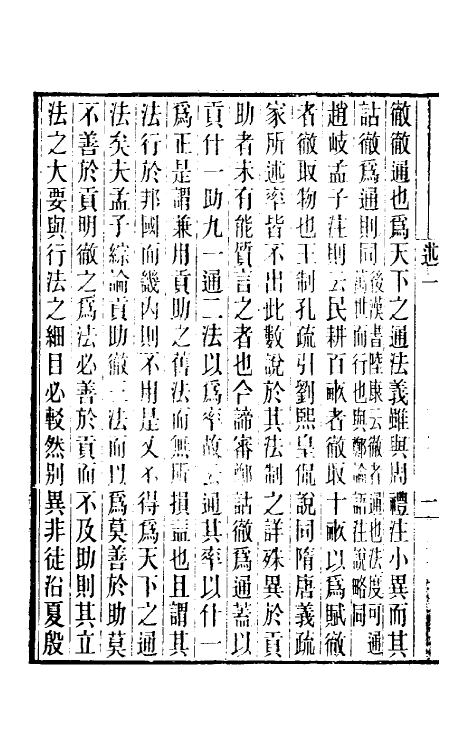 徹徹通也爲天下之通法義雖與周禮注小異而其
詁徹爲通則同後漢書陸康云徹者通也法度可通
萬世而行也與鄭論語注說略同
趙岐孟子注則云民耕百畝者徹取十畝以爲賦徹
者徹取物也王制孔疏引劉熙皇侃說同隋唐義疏
家所述率皆不出此數說於其法制之詳殊異於貢
助者未有能質言之者也今諦審鄭詁徹爲通蓋以
貢什一助九一通二法以爲率故云通其率以什一
爲正是謂兼用貢助之舊法而無所損益也且謂其
法行於邦國而畿内則不用是又不得爲天下之通
法矣夫孟子綜論貢助徹三法而以爲莫善於助莫
不善於貢明徹之爲法必善於貢而不及助則其立
法之大要與行法之細目必較然別異非徒沿夏殷
一